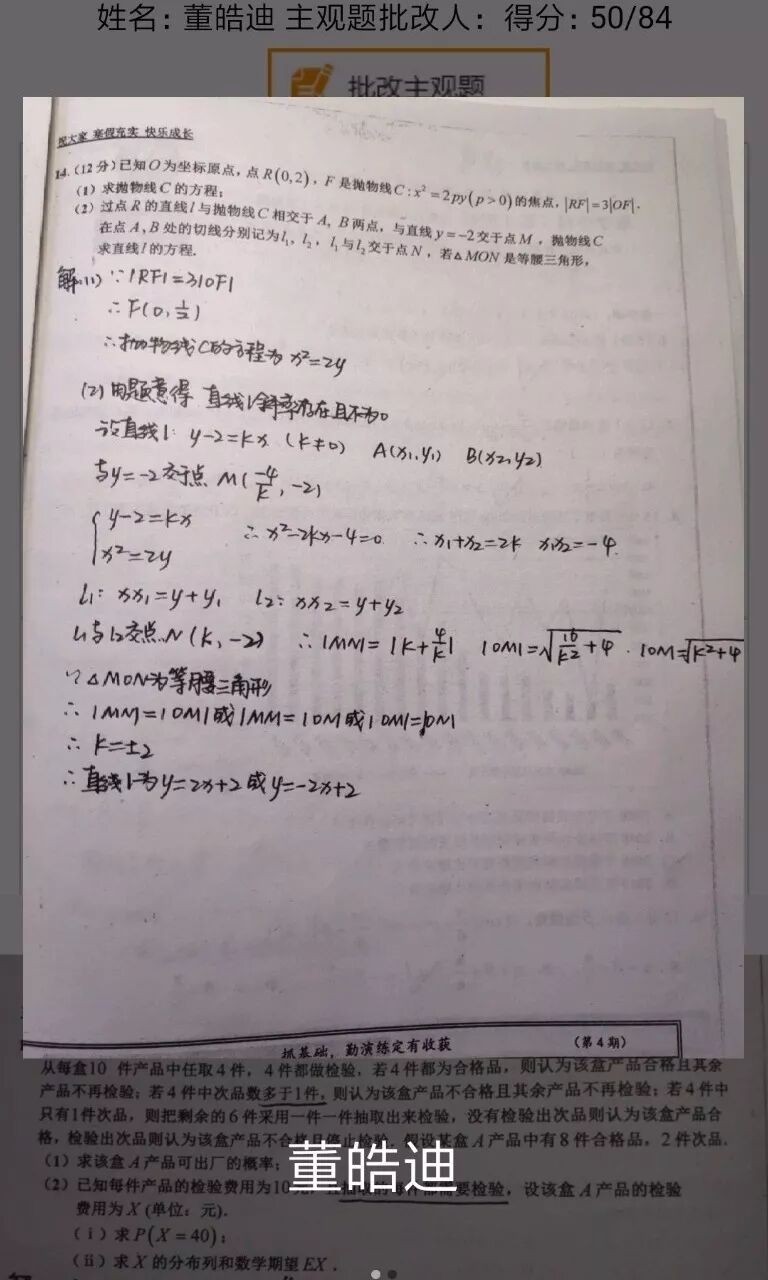 姓名：董皓迪 主观题批改人：得分：50/84
批改主观题
祝大家 寒假充实 快乐成长
14.(12分)已知O为坐标原点，点R(0,2)，F是抛物线C:x²=2py(p>0)的焦点，|RF|=3|OF|.
(1) 求抛物线C的方程；
(2) 过点R的直线l与抛物线C相交于A，B两点，与直线y=-2交于点M，抛物线C
在点A，B处的切线分别记为l₁，l₂，l₁与l₂交于点N，若△MON是等腰三角形，
求直线l的方程.
解:(1) ∵|RF|=3|OF|
∴F(0,1/2)
∴抛物线C的方程为 x²=2y
(2)由题意得 直线l斜率存在且不为0
设直线l: y-2=kx (k≠0) A(x₁,y₁) B(x₂,y₂)
与y=-2交于点 M(-4/k,-2)
{y-2=kx
x²=2y ∴x²-2kx-4=0 ∴x₁+x₂=2k x₁x₂=-4
l₁: xx₁=y+y₁ l₂: xx₂=y+y₂
l₁与l₂交点N(k,-2) ∴|MN|=|k+4/k| |OM|=√(16/k²+4) . |ON|=√(k²+4)
∵△MON为等腰三角形
∴|MN|=|OM|或|MN|=|ON|或|OM|=|ON|
∴k=±2
∴直线l为y=2x+2或y=-2x+2
抓基础，勤演练定有收获 (第4期)
从每盒10 件产品中任取4件，4件都做检验，若4件都为合格品，则认为该盒产品合格且其余
产品不再检验；若4件中次品数多于1件，则认为该盒产品不合格且其余产品不再检验；若4件中
只有1件次品，则把剩余的6件采用一件一件抽取出来检验，没有检验出次品则认为该盒产品合
格，检验出次品则认为该盒产品不合格且停止检验．假设某盒A产品中有8件合格品，2件次品.
(1) 求该盒A产品可出厂的概率；
董皓迪
(2) 已知每件产品的检验费用为10元，且抽取的每件都需要检验，设该盒A产品的检验
费用为X (单位：元).
(i) 求P(X=40)；
(ii) 求X的分布列和数学期望EX．